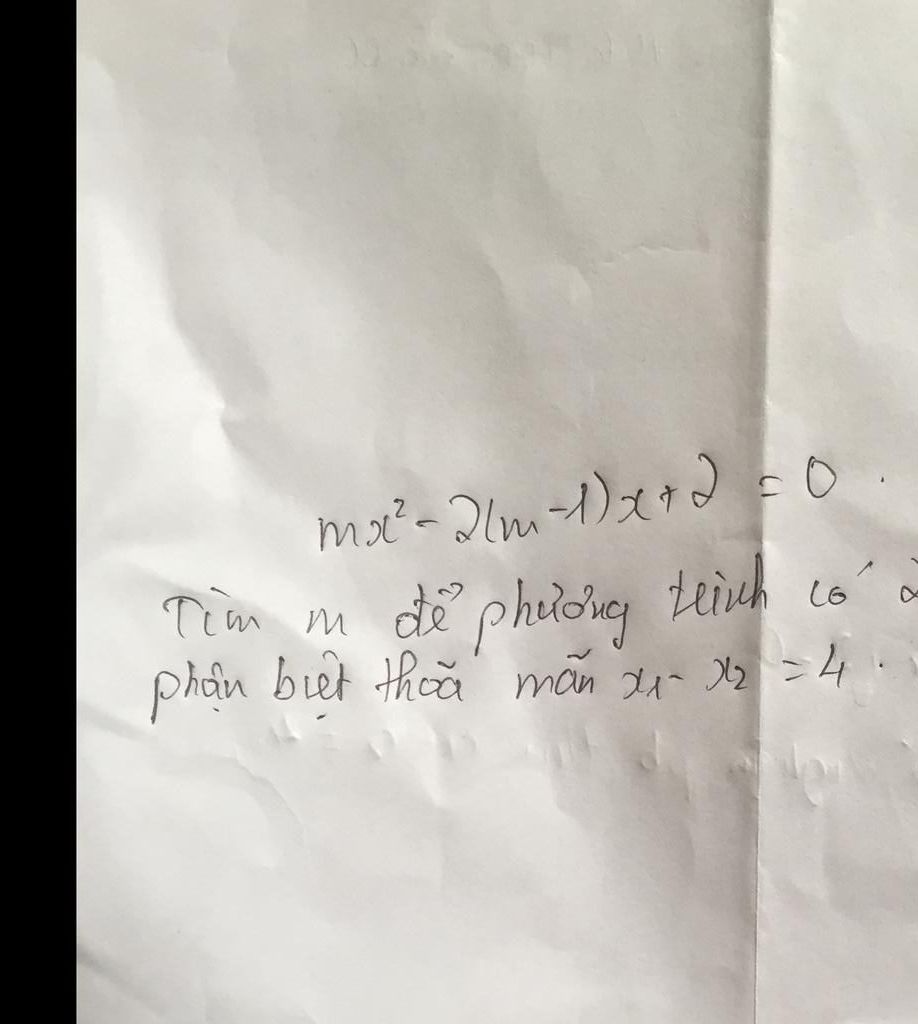 mx² - 2(m-1)x + 2 = 0.
Tìm m để phương trình có 2
phận biệt thoã mãn x₁ - x₂ = 4.